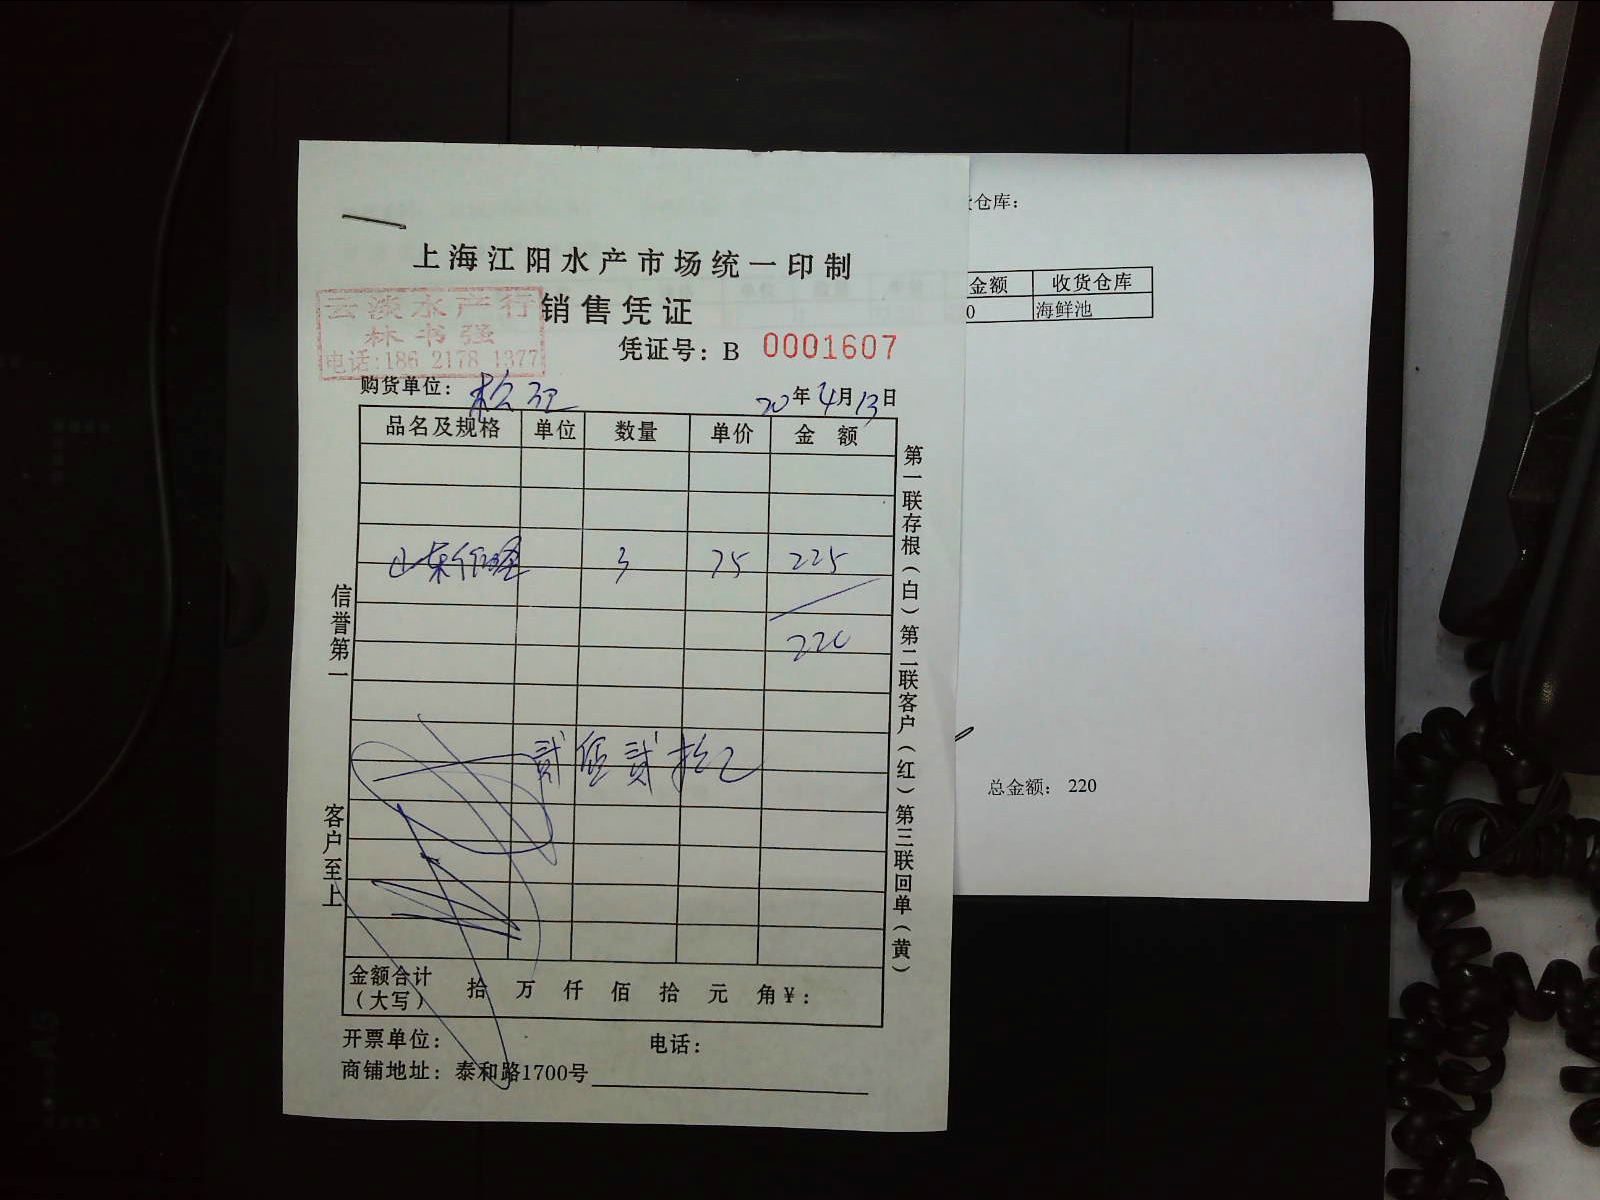 上海江阳水产市场统一印制
销售凭证
云淡水产行
林书强
电话:186 2178 1377
凭证号：B 0001607
购货单位：松江
20年4月13日
品名及规格 单位 数量 单价 金额
山东 3 75 225
220
贰佰贰拾元
信誉第一
客户至上
第一联存根（白）第二联客户（红）第三联回单（黄）
金额合计（大写） 拾 万 仟 佰 拾 元 角 ¥：
开票单位： 电话：
商铺地址：泰和路1700号
仓库：
金额 收货仓库
0 海鲜池
总金额： 220